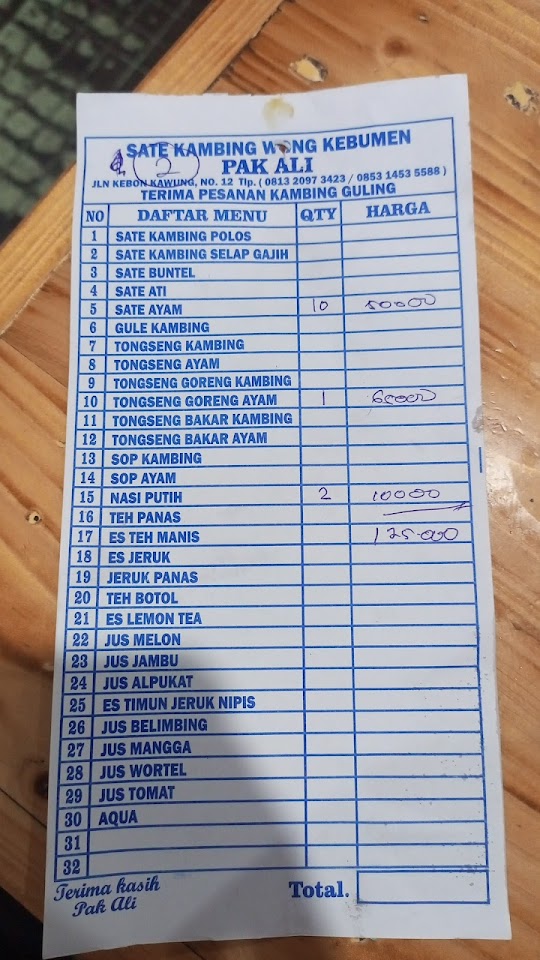 SATE KAMBING WONG KEBUMEN
(2) PAK ALI
JLN KEBON KAWUNG, NO. 12 Tlp. ( 0813 2097 3423 / 0853 1453 5588 )
TERIMA PESANAN KAMBING GULING
NO DAFTAR MENU QTY HARGA
1 SATE KAMBING POLOS
2 SATE KAMBING SELAP GAJIH
3 SATE BUNTEL
4 SATE ATI
5 SATE AYAM 10 50000
6 GULE KAMBING
7 TONGSENG KAMBING
8 TONGSENG AYAM
9 TONGSENG GORENG KAMBING
10 TONGSENG GORENG AYAM 1
11 TONGSENG BAKAR KAMBING
12 TONGSENG BAKAR AYAM
13 SOP KAMBING
14 SOP AYAM
15 NASI PUTIH 2 10000
16 TEH PANAS
17 ES TEH MANIS 125.000
18 ES JERUK
19 JERUK PANAS
20 TEH BOTOL
21 ES LEMON TEA
22 JUS MELON
23 JUS JAMBU
24 JUS ALPUKAT
25 ES TIMUN JERUK NIPIS
26 JUS BELIMBING
27 JUS MANGGA
28 JUS WORTEL
29 JUS TOMAT
30 AQUA
31
32
Terima kasih
Pak Ali
Total.